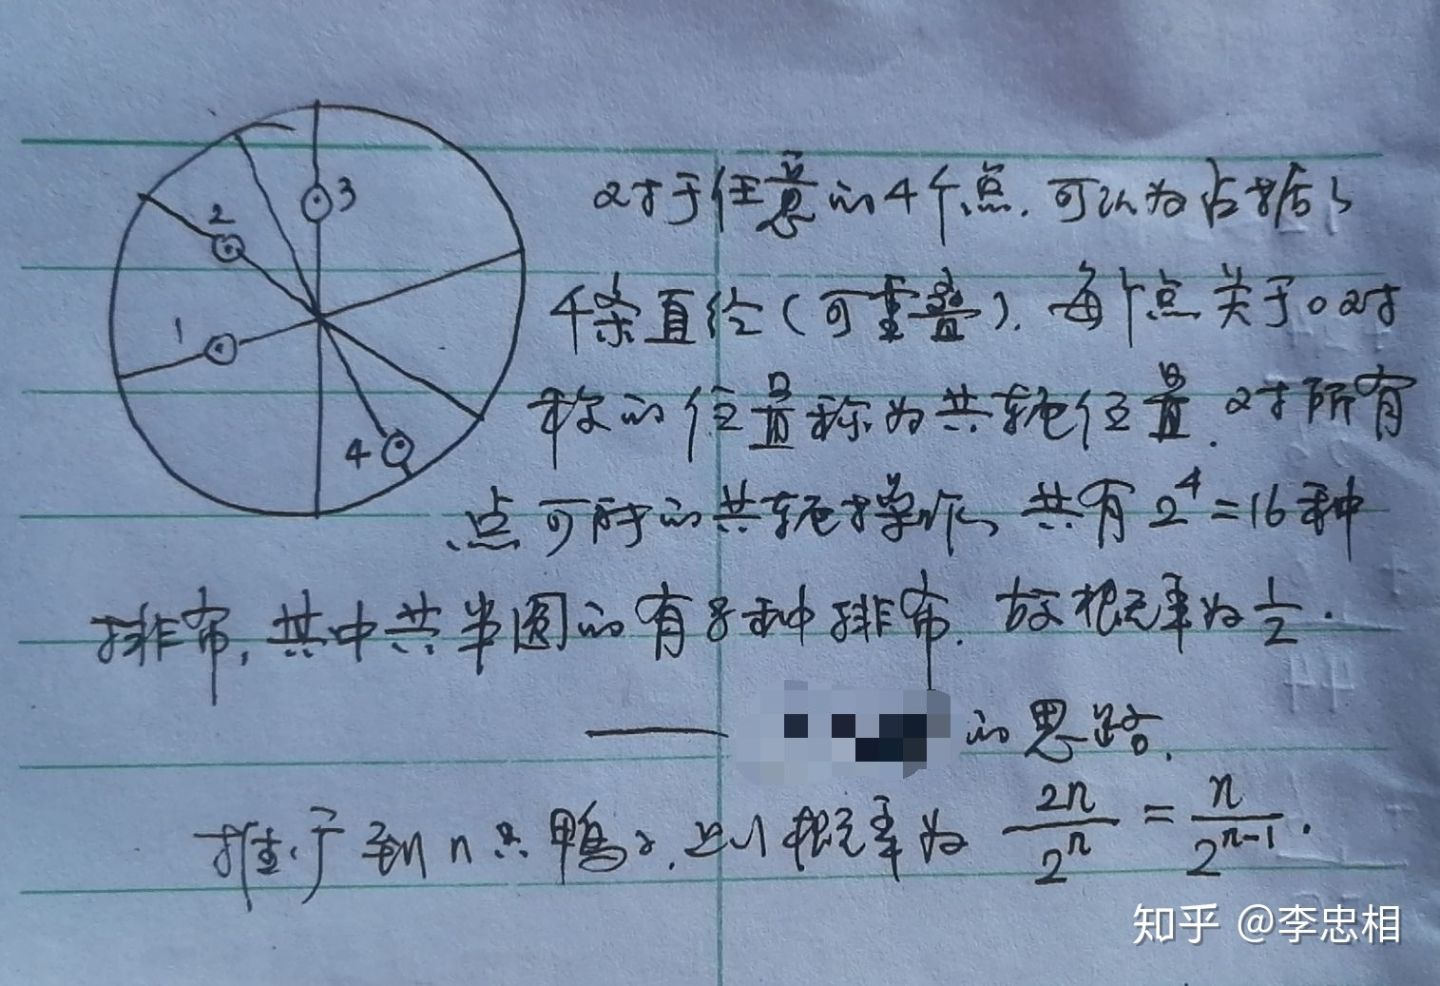 3
2
对于任意的4个点.可以为占据了
1
4条直径(可重叠).每个点关于o对
称的位置称为共轭位置.对所有
4
点可所的共轭操作,共有2^4=16种
排布,其中共半圆的有8种排布.故概率为1/2.
——的思路.
推广到n只鸭子,则概率为 2n/2^n = n/2^{n-1}.
知乎 @李忠相